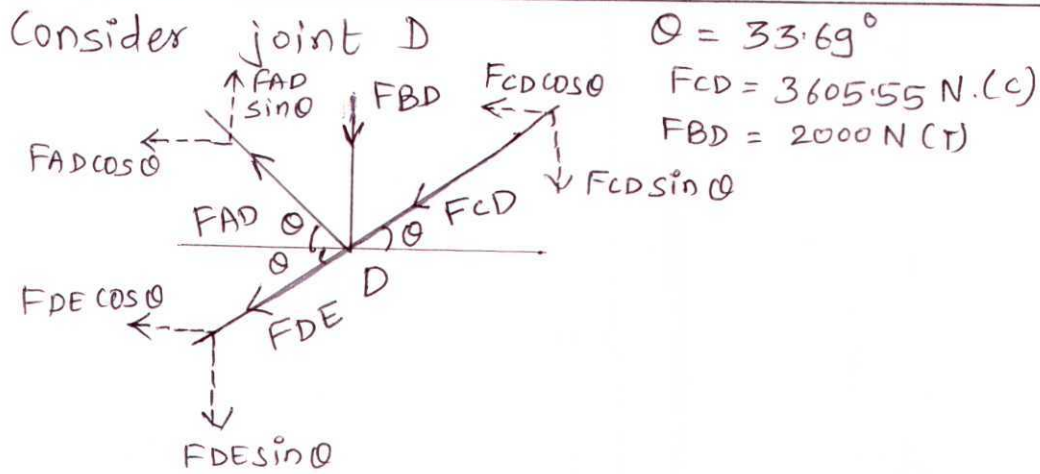 Consider joint D
θ = 33.69°
FCD = 3605.55 N.(C)
FBD = 2000 N (T)
FAD
sinθ
FBD
FCDcosθ
FADcosθ
FCDsinθ
FAD
θ
θ
θ
FCD
D
FDE cosθ
FDE
FDEsinθ